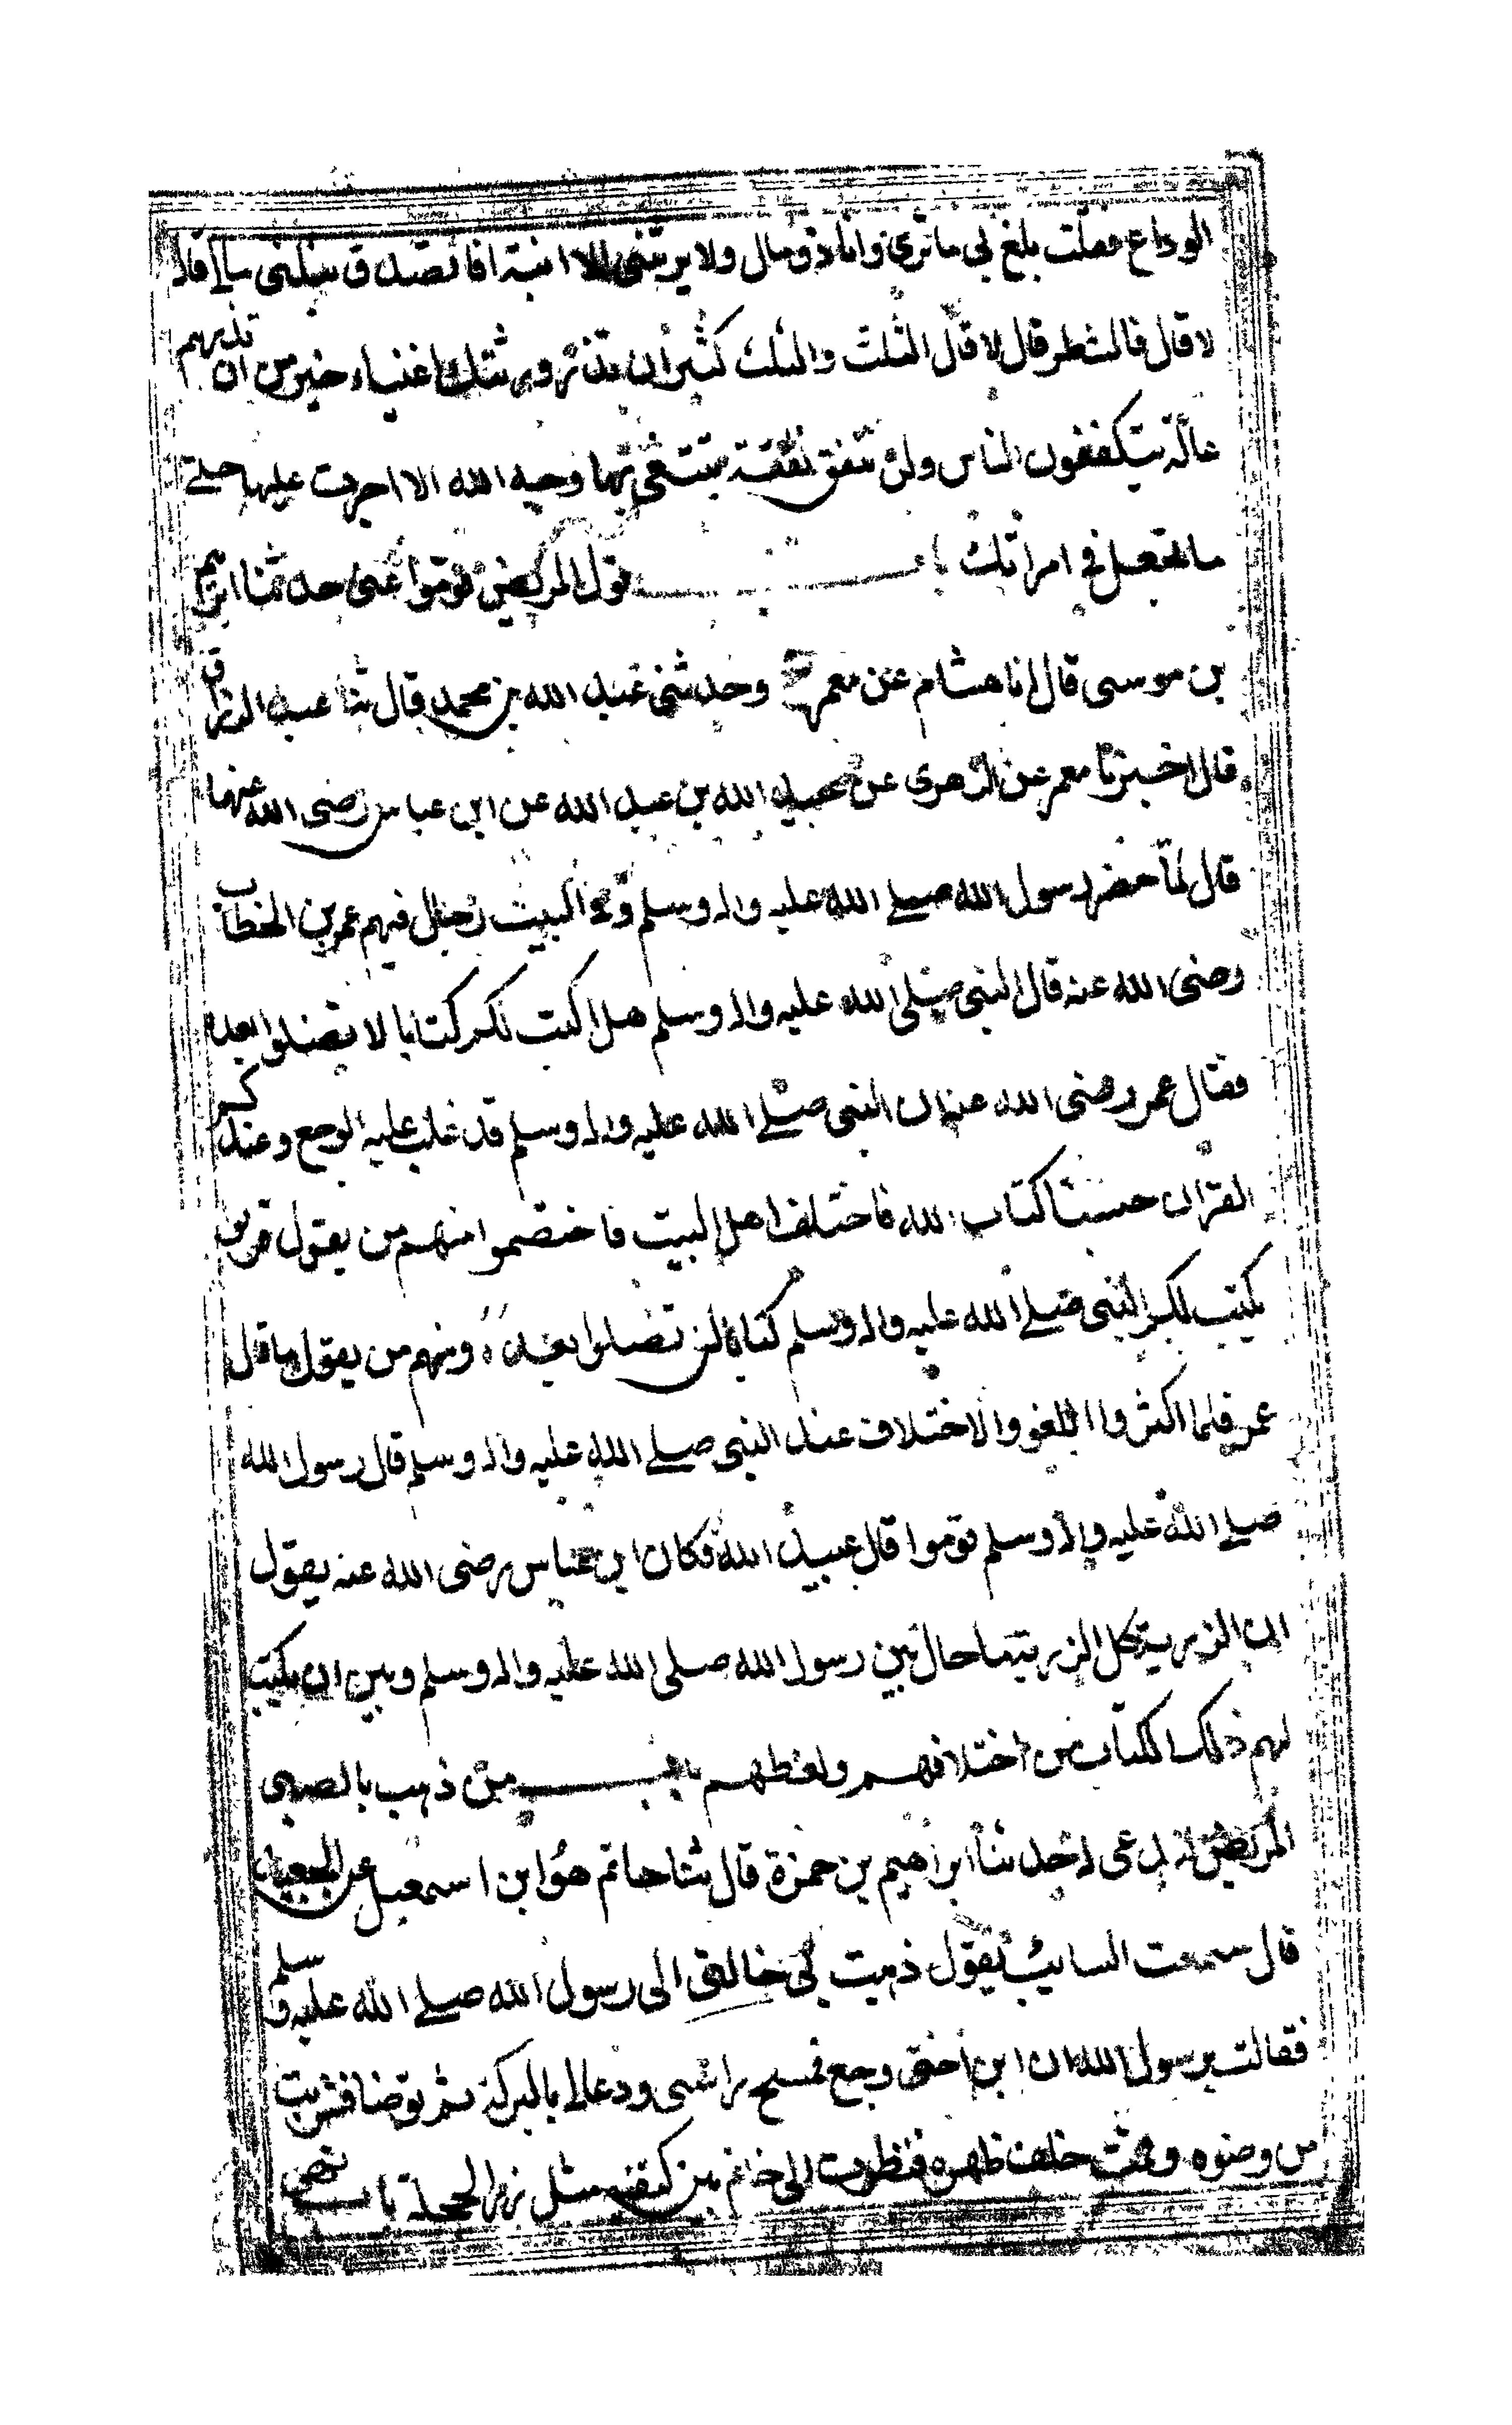 الوداع فقلت بلغ بي ما ترى وانا ذو مال ولا يرثني الا ابنة افاتصدق بثلثي مالي قال
لا قال فالشطر قال لا قال الثلث والثلث كثير ان تذر ورثتك اغنياء خير من ان تذرهم
عالة يتكففون الناس ولن تنفق نفقة تبتغي بها وجه الله الا اجرت عليها حتى
ما تجعل في امراتك باب قول المريض قوموا عني حدثنا ابراهيم
بن موسى قال انا هشام عن معمر ح وحدثني عبد الله بن محمد قال ثنا عبد الرزاق
قال اخبرنا معمر عن الزهرى عن عبيد الله بن عبد الله عن ابن عباس رضى الله عنهما
قال لما حضر رسول الله صلے الله عليه واله وسلم وفي البيت رجال فيهم عمر بن الخطاب
رضى الله عنه قال النبي صلى الله عليه واله وسلم هل اكتب لكم كتابا لا تضلوا بعده
فقال عمر رضى الله عنه ان النبي صلے الله عليه واله وسلم قد غلب عليه الوجع وعندكم
القران حسبنا كتاب الله فاختلف اهل البيت فاختصموا منهم من يقول قربوا
يكتب لكم النبي صلے الله عليه واله وسلم كتابا لن تضلوا بعده ومنهم من يقول ما قال
عمر فلما اكثروا اللغو والاختلاف عند النبي صلے الله عليه واله وسلم قال رسول الله
صلے الله عليه واله وسلم قوموا قال عبيد الله فكان ابن عباس رضى الله عنه يقول
ان الرزية كل الرزية ما حال بين رسول الله صلى الله عليه واله وسلم وبين ان يكتب
لهم ذلك الكتاب من اختلافهم ولغطهم باب من ذهب بالصبي
المريض ليدعى له حدثنا ابراهيم بن حمزة قال ثنا حاتم هو ابن اسمعيل عن الجعيد
قال سمعت السايب يقول ذهبت بي خالتى الى رسول الله صلے الله عليه وسلم
فقالت يرسول الله ان ابن اختى وجع فمسح راسى ودعا لي بالبركة ثم توضا فشربت
من وضوه وقمت خلف ظهره فنظرت الى خاتم بين كتفيه مثل زر الحجلة باب نهي